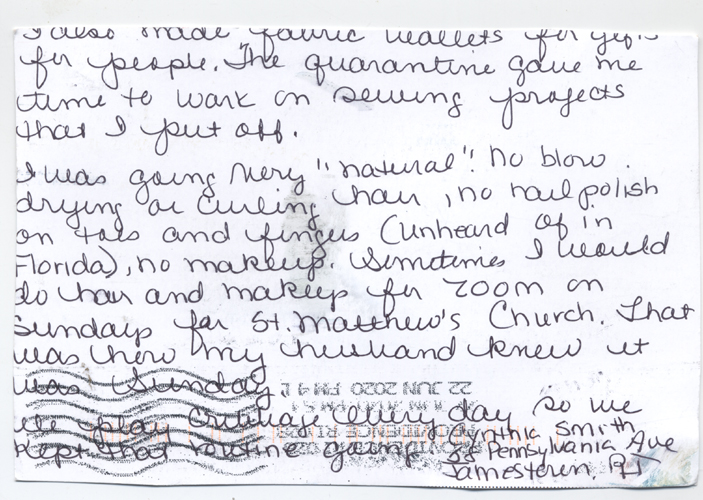 I also made fabric wallets for gifts
for people. The quarantine gave me
time to work on sewing projects
that I put off.
I was going very "natural". no blow
drying or curling hair, no nail polish
on toes and fingers (unheard of in
Florida), no makeup. Sometimes I would
do hair and makeup for zoom on
Sundays for St. Matthew's Church. That
was how my husband knew it
was Sunday.
22 JUN 2020 PM 4 L
We play cribbage every day so we
kept that routine going.
PROVIDENCE RI
Cynthia Smith
88 Pennsylvania Ave
Jamestown, RI